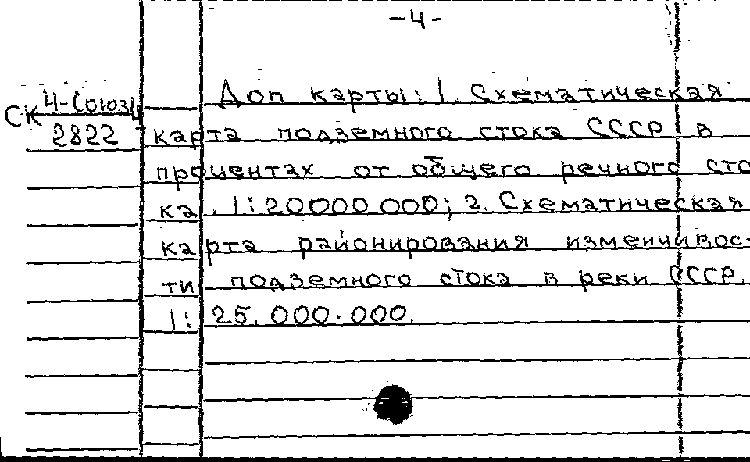 -4-
СК 4-Союз
2822
Доп карты: 1. Схематическая
карта подземного стока СССР в
процентах от общего речного сто
ка. 1:20000000; 2. Схематическая
карта районирования изменчивос
ти подземного стока в реки СССР.
1:25.000.000.